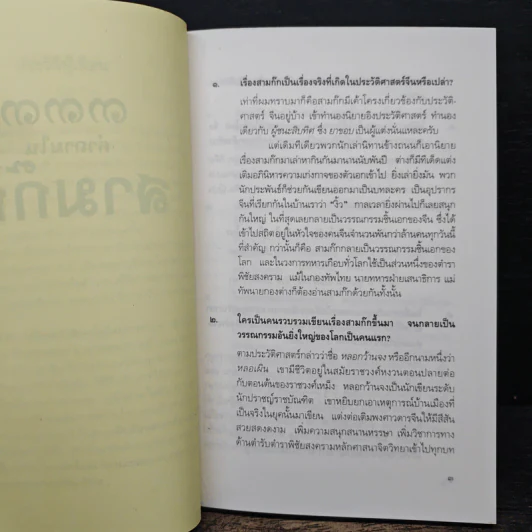 ๓๓๓
คำถามใน
สามก๊ก
๑. เรื่องสามก๊กเป็นเรื่องจริงที่เกิดในประวัติศาสตร์จีนหรือเปล่า?
เท่าที่ผมทราบมาก็คือสามก๊กมีเค้าโครงเกี่ยวข้องกับประวัติ-
ศาสตร์ จีนอยู่บ้าง เข้าทำนองนิยายอิงประวัติศาสตร์ ทำนอง
เดียวกับ ผู้ชนะสิบทิศ ซึ่ง ยาขอบ เป็นผู้แต่งนั่นแหละครับ
แต่เดิมทีเดียวพวกนักเล่านิทานข้างถนนก็เอานิยาย
เรื่องสามก๊กมาเล่าหากินกันมานานนับพันปี ต่างก็มีทีเด็ดแต่ง
เติมอภินิหารความเก่งกาจของตัวเอกเข้าไป ยิ่งเล่ายิ่งมัน พวก
นักประพันธ์ก็ช่วยกันเขียนออกมาเป็นบทละคร เป็นอุปรากร
จีนที่เรียกกันในบ้านเราว่า "งิ้ว" กาลเวลายิ่งผ่านไปก็เลยสนุก
กันใหญ่ ในที่สุดเลยกลายเป็นวรรณกรรมชิ้นเอกของจีน ซึ่งได้
เข้าไปสถิตอยู่ในหัวใจของคนจีนจำนวนพันกว่าล้านคนทุกวันนี้
ที่สำคัญ กว่านั้นก็คือ สามก๊กกลายเป็นวรรณกรรมชิ้นเอกของ
โลก และในวงการทหารเกือบทั่วโลกใช้เป็นส่วนหนึ่งของตำรา
พิชัยสงคราม แม้ในกองทัพไทย นายทหารฝ่ายเสนาธิการ แม่
ทัพนายกองต่างก็ต้องอ่านสามก๊กด้วยกันทั้งนั้น
๒. ใครเป็นคนรวบรวมเขียนเรื่องสามก๊กขึ้นมา จนกลายเป็น
วรรณกรรมอันยิ่งใหญ่ของโลกเป็นคนแรก?
ตามประวัติศาสตร์กล่าวว่าชื่อ หลอกว้านจง หรืออีกนามหนึ่งว่า
หลอเผิน เขามีชีวิตอยู่ในสมัยราชวงศ์หงวนตอนปลายต่อ
กับตอนต้นของราชวงศ์เหม็ง หลอกว้านจงเป็นนักเขียนระดับ
นักปราชญ์ราชบัณฑิต เขาหยิบยกเอาเหตุการณ์บ้านเมืองที่
เป็นจริงในยุคนั้นมาเขียน แต่งต่อเติมพงศาวดารจีนให้มีสีสัน
สวยสดงดงาม เพิ่มความสนุกสนานหรรษา เพิ่มวิชาการทาง
ด้านตำรับตำราพิชัยสงครามหลักศาสนาจิตวิทยาเข้าไปทุกบท